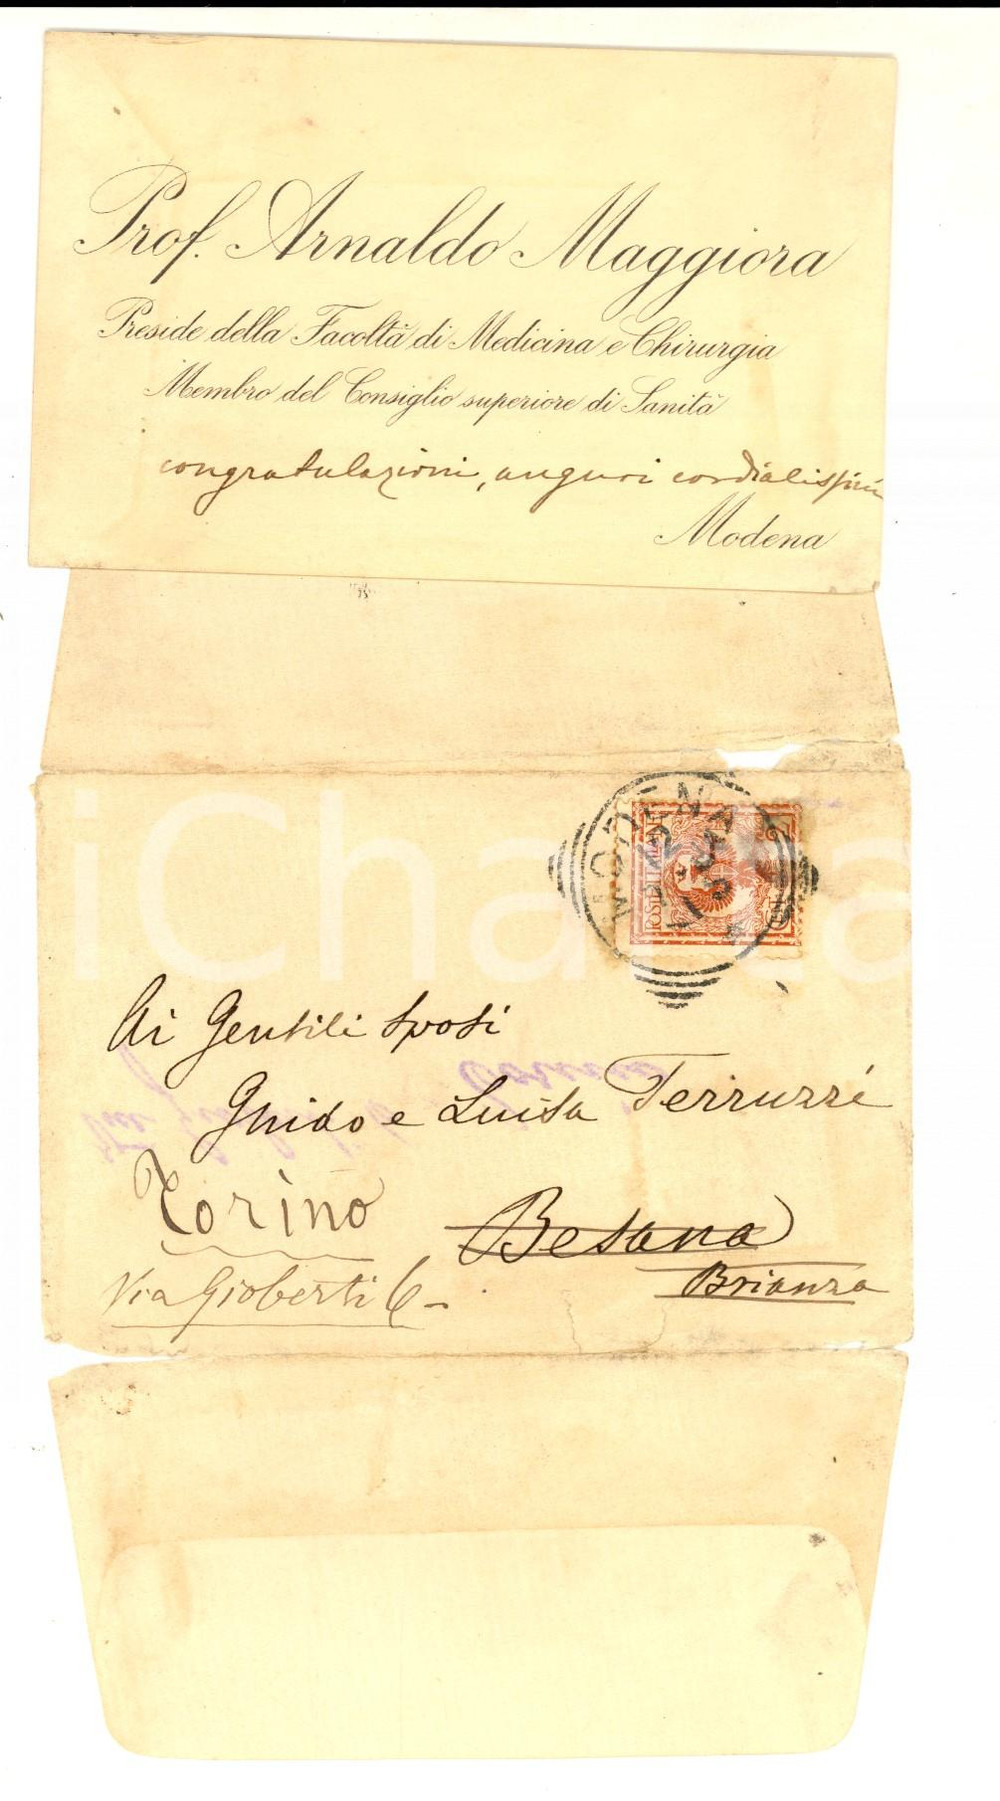 Prof. Arnaldo Maggiora
Preside della Facoltà di Medicina e Chirurgia
Membro del Consiglio superiore di Sanità
congratulazioni, auguri cordialissimi
Modena
MODENA
POSTE ITALIANE
Ai Gentili Sposi
Guido e Luisa Terruzzi
Torino
Via Gioberti 6-
Besana
Brianza
iCharta